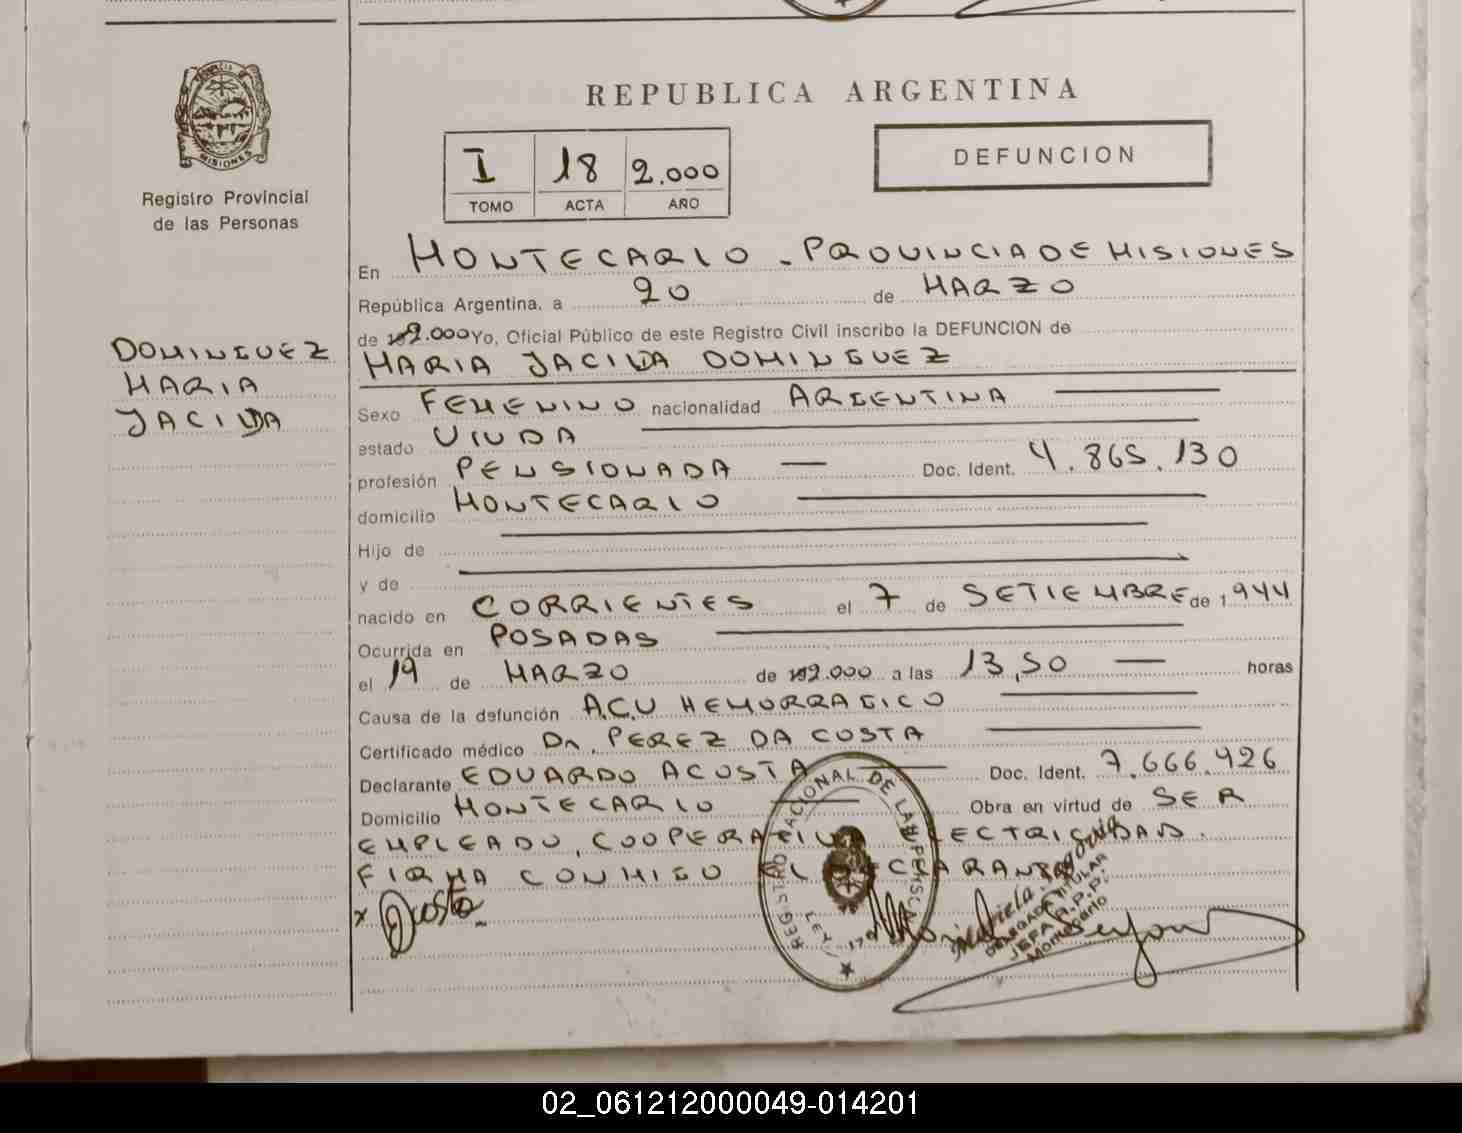 PROVINCIA DE
MISIONES
Registro Provincial
de las Personas
DOMINGUEZ
MARIA
JACILDA
REPUBLICA ARGENTINA
I 18 2.000
TOMO ACTA AÑO
DEFUNCION
En MONTECARLO - PROVINCIA DE MISIONES
República Argentina, a 20 de MARZO
de 2.000 Yo, Oficial Público de este Registro Civil inscribo la DEFUNCION de
MARIA JACILDA DOMINGUEZ
Sexo FEMENINO nacionalidad ARGENTINA
estado VIUDA
profesión PENSIONADA — Doc. Ident. 4.865.130
domicilio MONTECARLO
Hijo de
y de
nacido en CORRIENTES el 7 de SETIEMBRE de 1944
Ocurrida en POSADAS
el 19 de MARZO de 2.000 a las 13,50 — horas
Causa de la defunción A.C.V HEMORRAGICO
Certificado médico Dr. PEREZ DA COSTA
Declarante EDUARDO ACOSTA Doc. Ident. 7.666.426
Domicilio MONTECARLO Obra en virtud de SER
EMPLEADO, COOPERATIVA ELECTRICIDAD.
FIRMA CONMIGO EL DECLARANTE
x Acosta
REGISTRO NACIONAL DE LAS PERSONAS
DELEGADA TITULAR
JEFA R.P.P.
Montecarlo
02_061212000049-014201